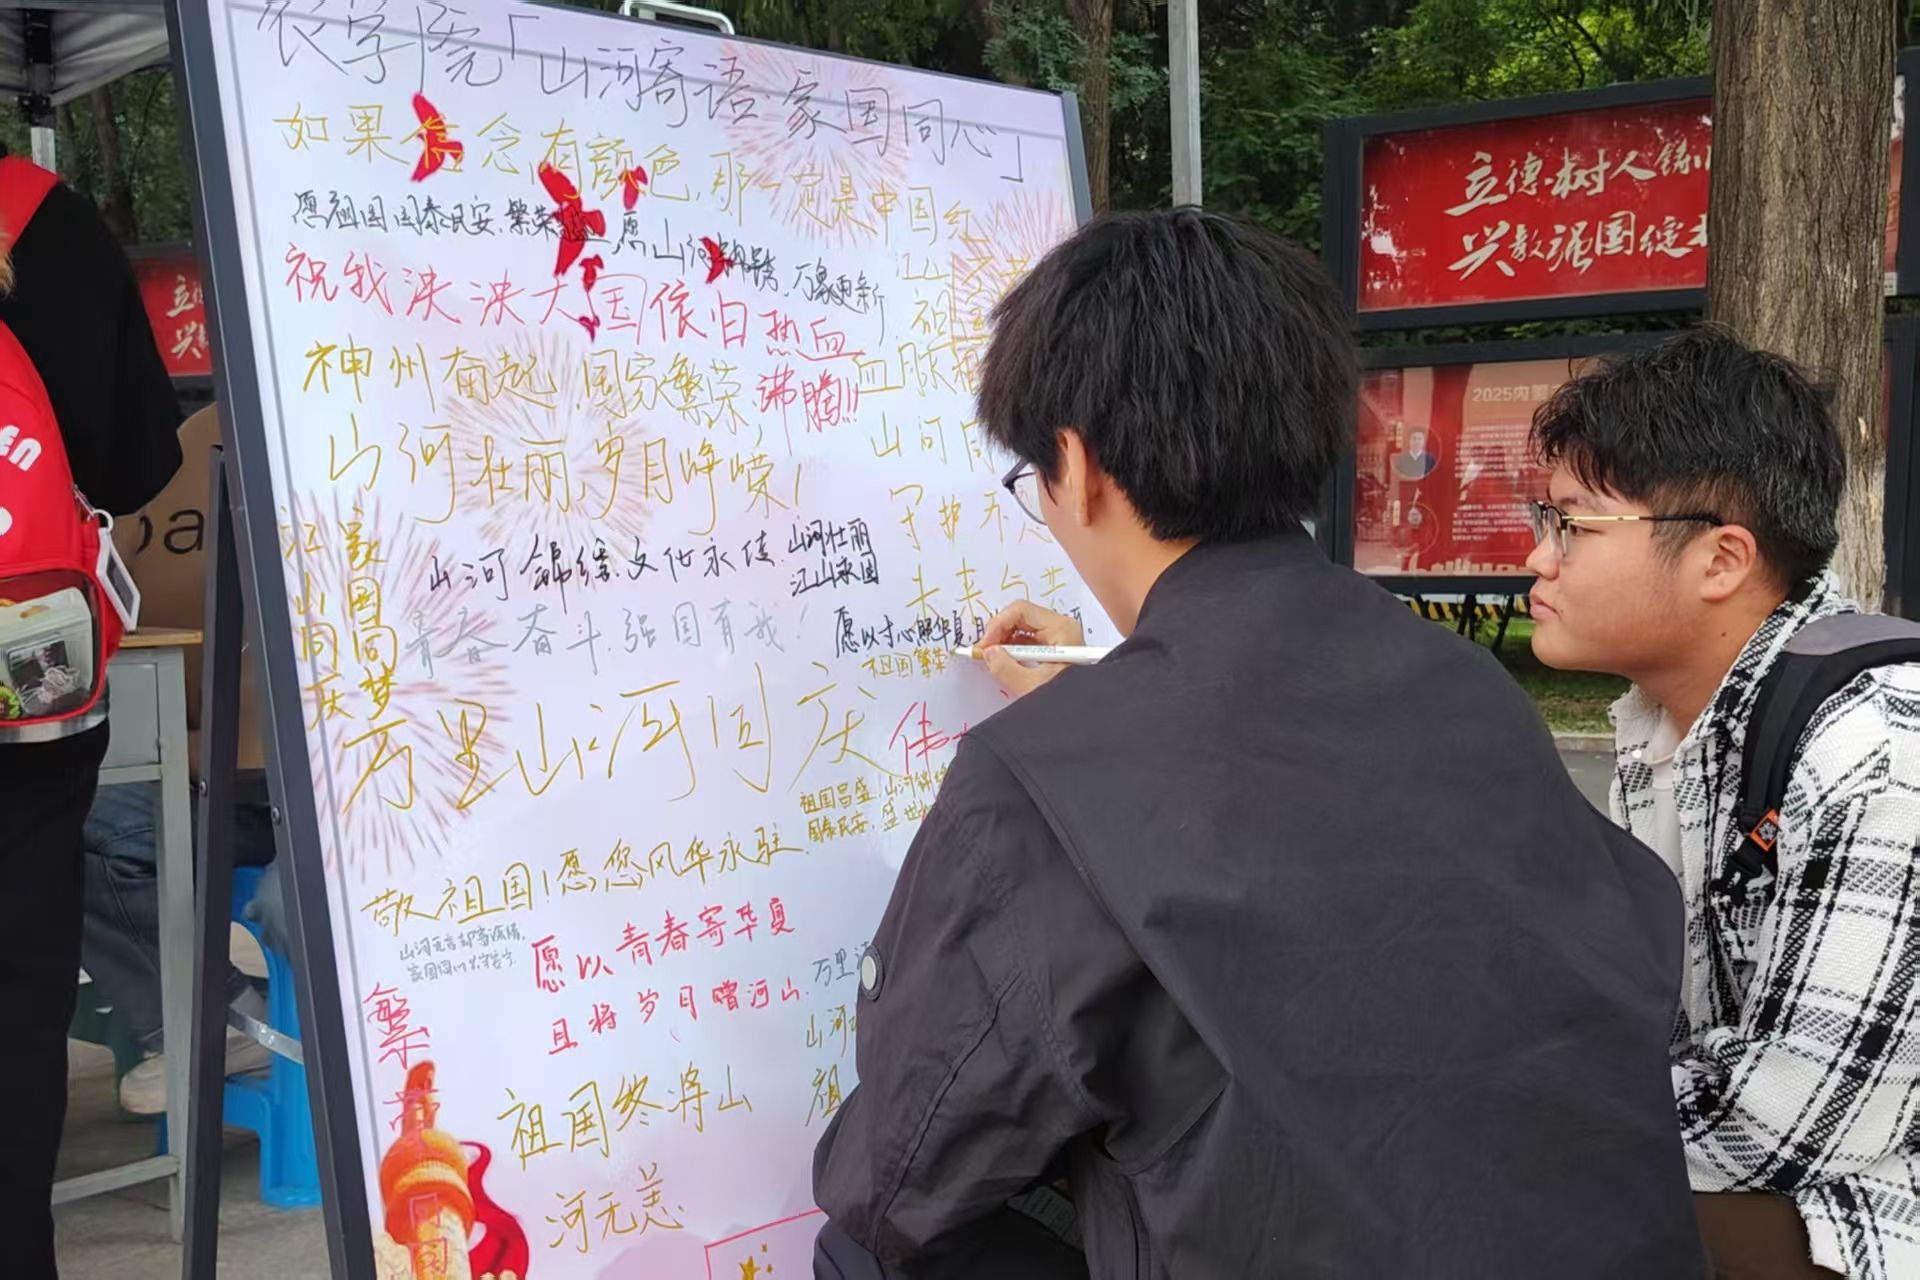 农学院「山河寄语·家国同心」
如果信念有颜色,那一定是中国红
愿祖国国泰民安,繁荣 愿山河锦绣,万象更新
祝我泱泱大国依旧热血
沸腾!!
神州奋起,国家繁荣,
山河壮丽,岁月峥嵘!
祖国
血脉
山河同
守护不
未来与
山河锦绣,文化永佳.
山河壮丽
江山永固
家国同梦
江山同庆
青春奋斗,强国有我!
愿以寸心照华夏,且
祖国繁荣
万里山河同庆
伟
祖国昌盛,山河锦绣
国泰民安,盛世
敬祖国!愿您风华永驻.
愿以青春寄华夏
且将岁月赠河山.
万里
山河
祖
繁荣
祖国终将山
河无恙
立德树人铸
兴教强国绽
2025内蒙
EN